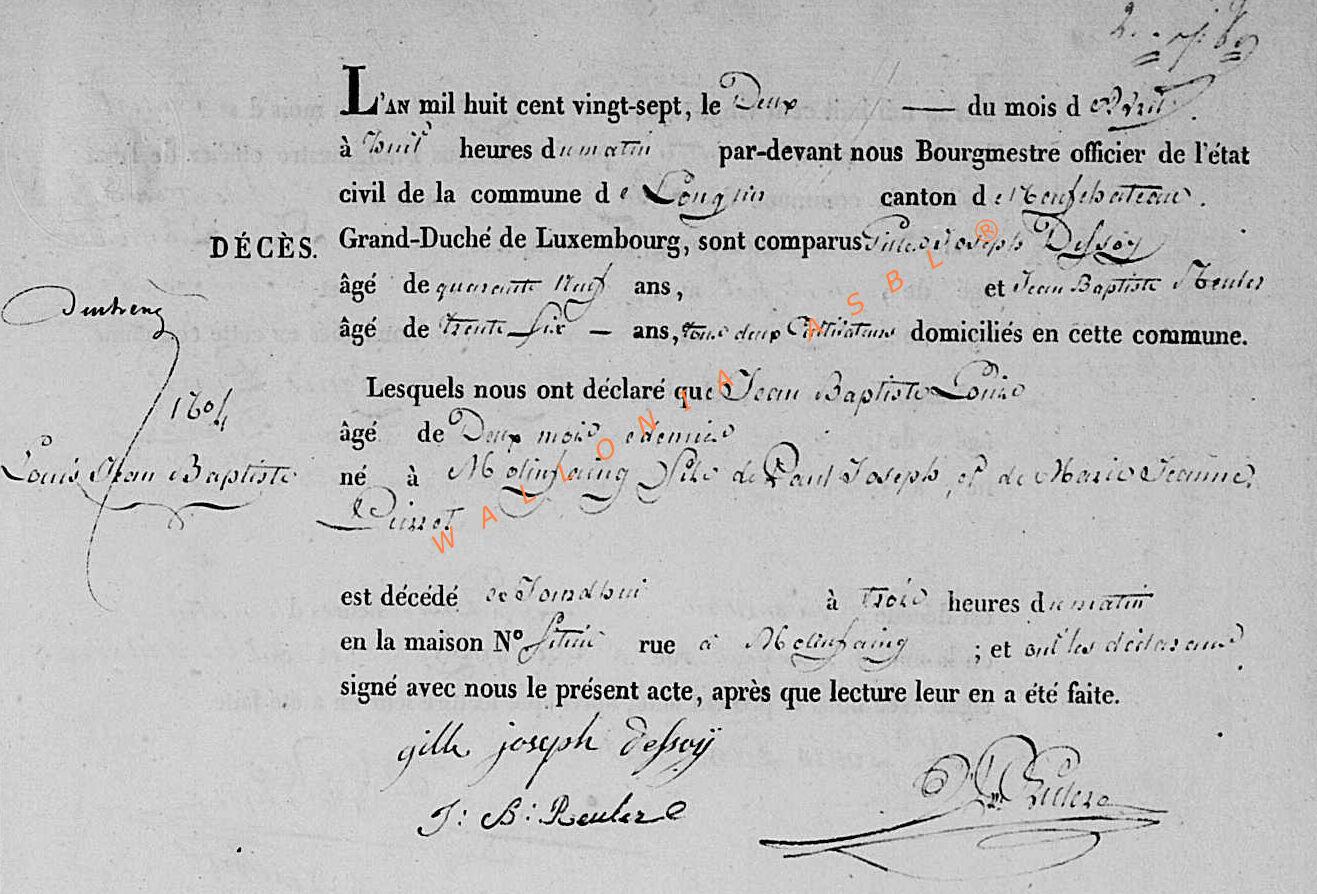 L'AN mil huit cent vingt-sept, le Deux du mois d Avril
à huit heures du matin par-devant nous Bourgmestre officier de l'état
civil de la commune de Longlier canton de Neufchateau.
DÉCÈS. Grand-Duché de Luxembourg, sont comparus Gille Joseph Dessoy
âgé de quarante Neuf ans, et Jean Baptiste Reuler
âgé de trente Six — ans, tous deux Cultivateurs domiciliés en cette commune.
Lesquels nous ont déclaré que Jean Baptiste Louis
âgé de Deux mois edemies
né à Molinfaing fils de Paul Joseph et de Marie Jeanne
1604
Louis Jean Baptiste
est décédé ce Jourdhui à trois heures du matin
en la maison N° situé rue à Molinfaing ; et ont les déclarans
signé avec nous le présent acte, après que lecture leur en a été faite.
gille joseph dessoÿ
J: B: Reuler
WALLONIA ASBL ®